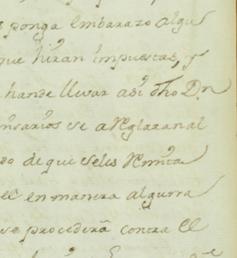 ponga embarazo algu
que huran Impuestas, y
hande llevar asi dho Dn
arreglaran al
do de que seles Remita
en manera alguna
se procedera contra el